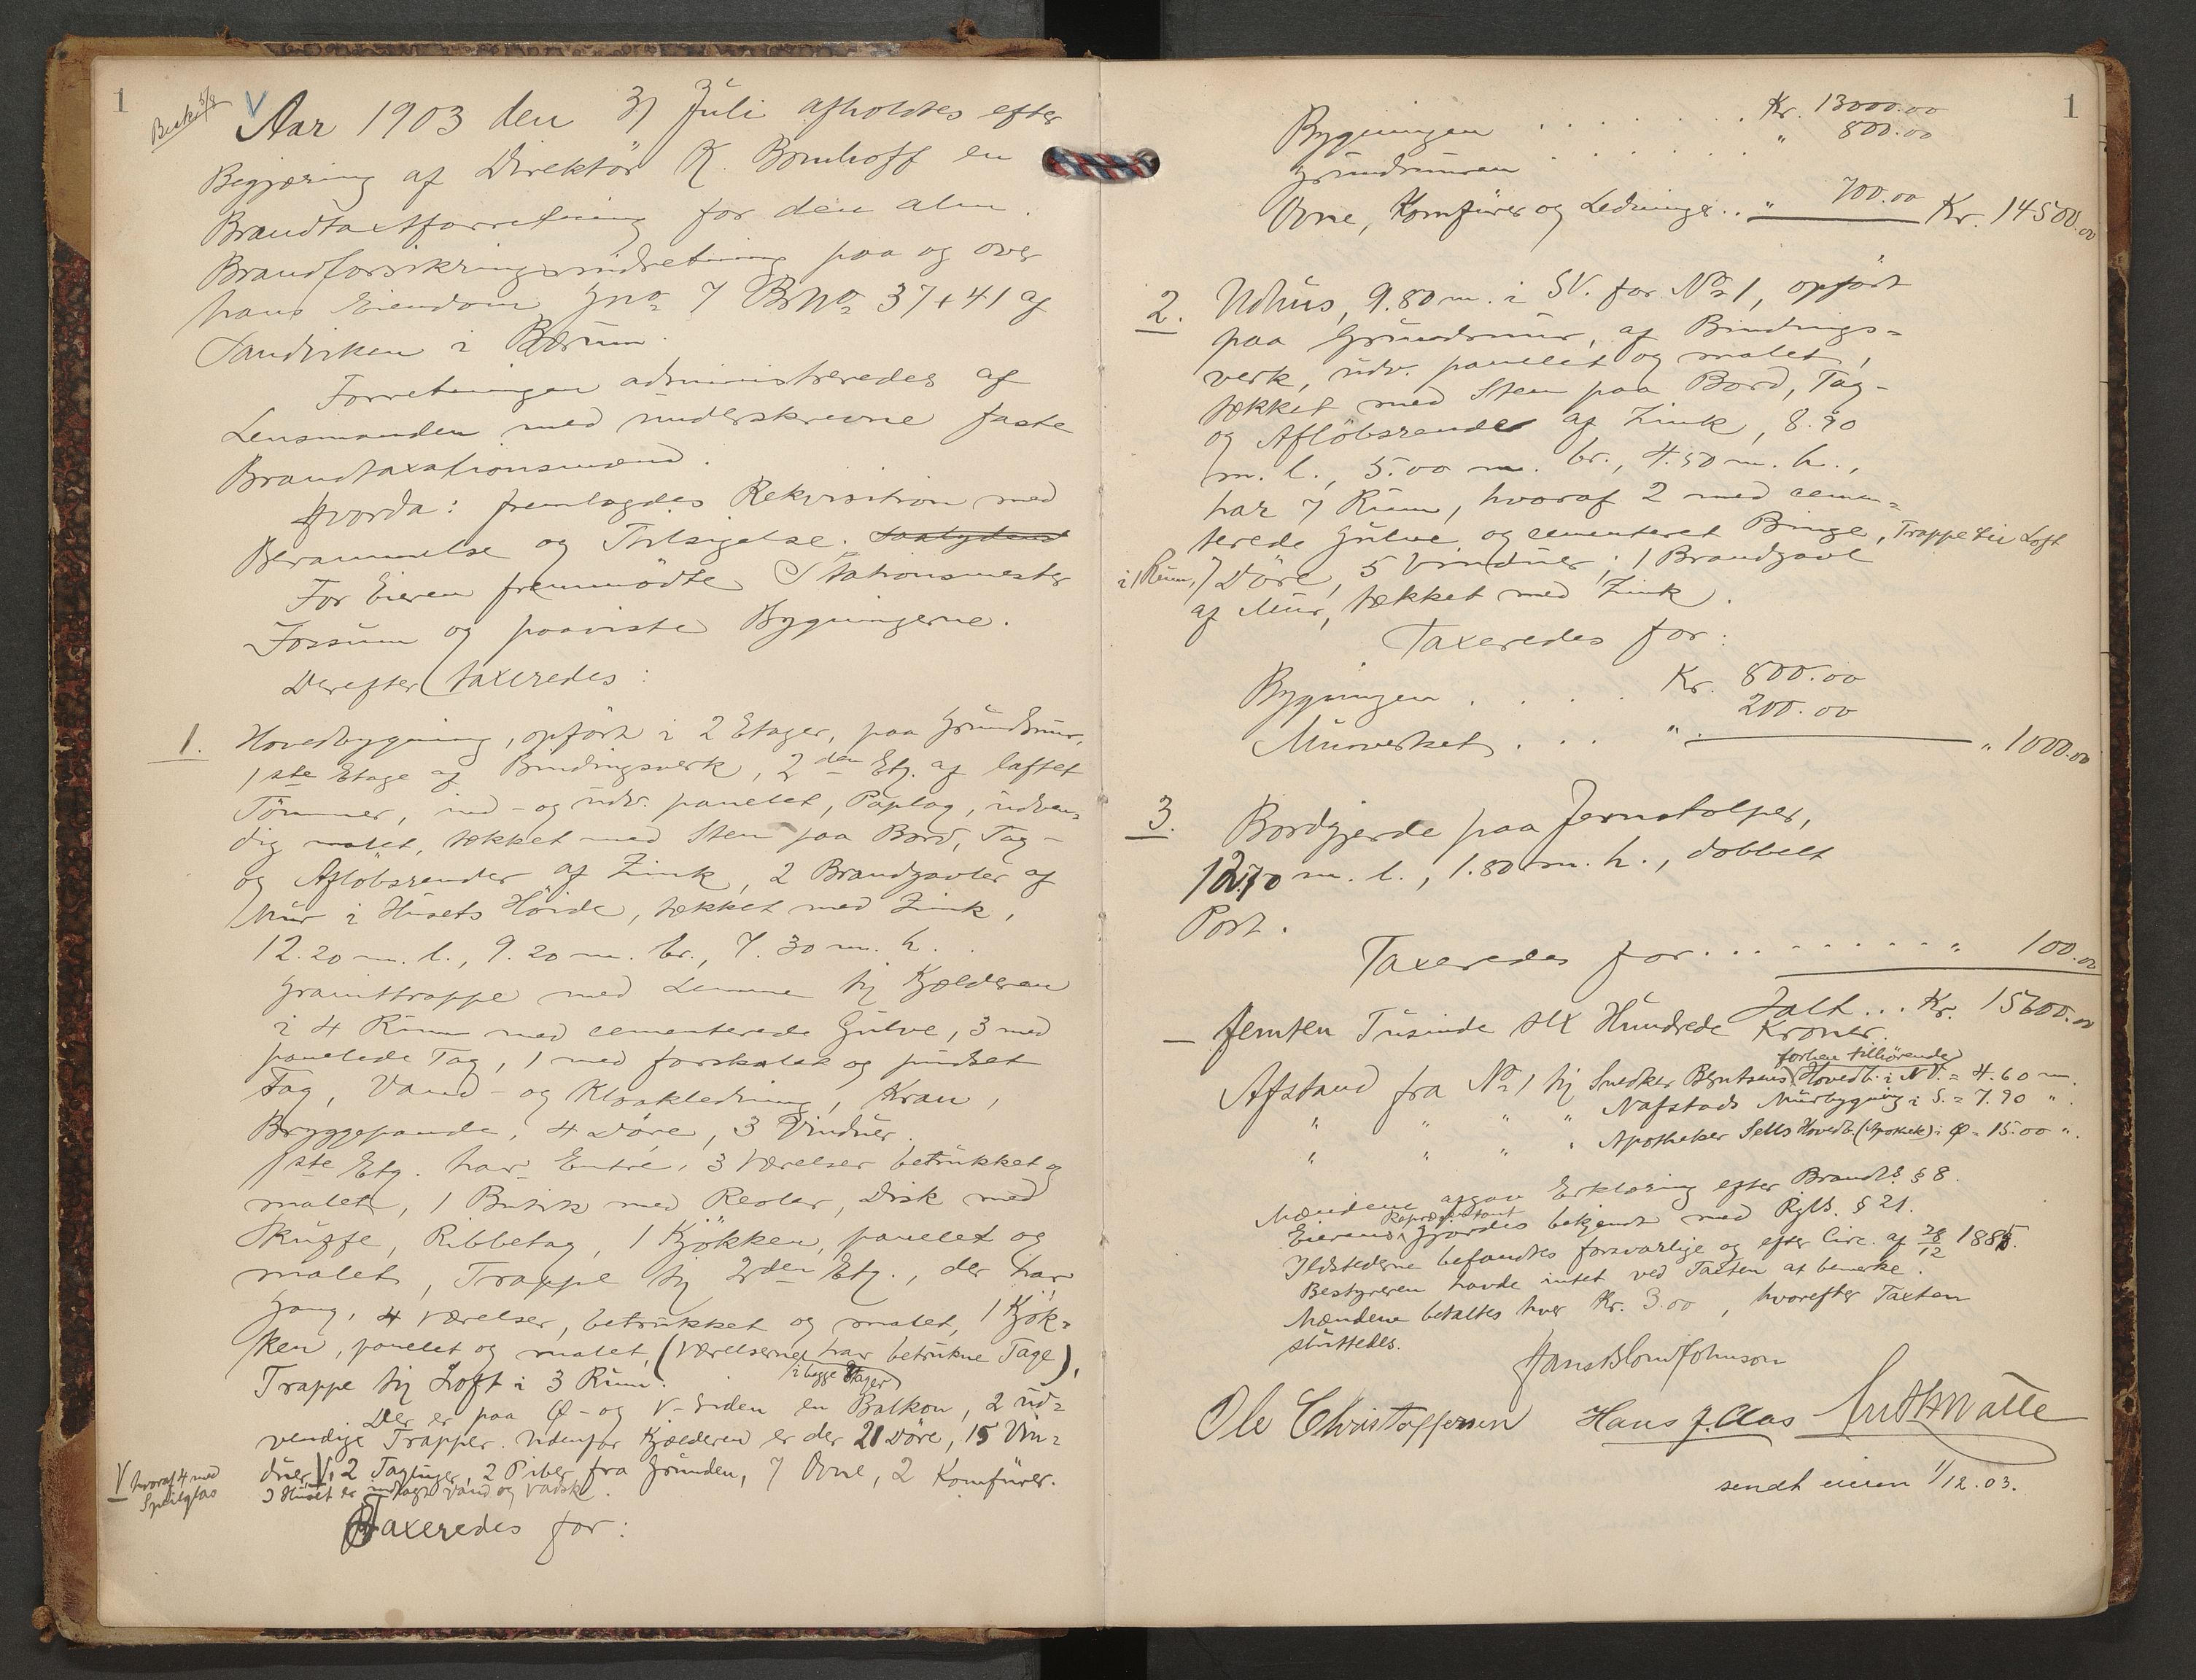 1
Besk. 5/8
V Aar 1903 den 31 Juli afholdtes efter
Begjæring af Direktör K. Bomhoff en
Brandtaxtforretning for den alm.
Brandforsikringsindretning paa og over
hans Eiendom Gno 7 Brno 37 + 41 af
Sandviken i Bærum.
Forretningen administreredes af
Lensmanden med underskrevne faste
Brandtaxationsmænd.
Hvorda: fremlagdes Rekvisition med
Berammelse og Tilsigelse.
For Eieren fremmödte Stationsmester
Fossum og paaviste Bygningerne.
Derefter taxeredes:
1. Hovedbygning, opfört i 2 Etager, paa Grundmur,
1ste Etage af Bindingsverk, 2den Etg. af laftet
Tömmer, ind- og udv. panelet, Paplag, udven=
dig malet, tækket med Sten paa Bord, Tag-
og Aflöbsrender af Zink, 2 Brandgavler af
Mur i Husets Höide, tækket med Zink,
12.20 m. l., 9.20 m. br., 7.30 m. h.
Granittrappe med Lemme til Kjælderen
i 4 Rum med cementerede Gulve, 3 med
panelede Tag, 1 med forskalet og pudset
Tag, Vand- og Kloakledning, Kran,
Bryggepande, 4 Döre, 3 Vinduer.
1ste Etg. har Entré, 3 Værelser betrukket og
malet, 1 Butik med Reoler, Disk med
Skuffe, Ribbetag, 1 Kjökken, panelet og
malet, Trappe til 2den Etg., der har
Gang, 4 Værelser, betrukket og malet, 1 Kjök=
ken, panelet og malet, (Værelserne har betrukne Tage),
i begge Etager
Trappe til Loft i 3 Rum.
Der er paa Ø- og V-Siden en Balkon, 2 ud=
vendige Trapper. Udenfor Kjælderen er der 21 Döre, 15 Vin=
duer V, 2 Tagluger, 2 Piber fra Grunden, 7 Ovne, 2 Komfürer.
V hvoraf 4 med
Speilglas
I Huset er indlagt Vand og Vadsk.
Taxeredes for:
1
Bygningen . . . . . . . Kr. 13000.00
Grundmuren . . . . . . " 800.00
Ovne, Komfürer og Ledninge . . " 700.00 Kr. 14500.00
2. Udhus, 9.80 m. i SV. for No 1, opfört
paa Grundmur, af Bindings=
verk, udv. panelet og malet,
tækket med Sten paa Bord, Tag-
og Aflöbsrender af Zink, 8.90
m. l., 5.00 m. br., 4.50 m. h.,
har 7 Rum, hvoraf 2 med cemen=
terede Gulve og cementeret Binge, Trappe til Loft
i 1 Rum, 7 Döre, 5 Vinduer; 1 Brandgavl
af Mur, tækket med Zink.
Taxeredes for:
Bygningen . . . . Kr. 800.00
Murverket . . . " 200.00 " 1000.00
3. Bordgjerde paa Jernstolper,
12.70 m. l., 1.80 m. h., dobbelt
Port.
Taxeredes for . . . . . . . . . " 100.00
Ialt . . . Kr. 15600.00
— femten Tusinde sex Hundrede Kroner.
forhen tilhörende
Afstand fra No 1 til Snedker Berntsens Hovedb. i NV. = 4.60 m.
" " " " Nafstads Murbygning i S. = 7.90 ".
" " " " Apotheker Sells Hovedb. (Apothek) i Ø = 15.00 ".
Mændene afgav Erklæring efter Brandl. § 8.
Repræsentant
Eierens gjordes bekjendt med Rglb. § 21.
Ildstederne befandtes forsvarlige og efter Circ. af 28/12 1885.
Bestyreren havde intet ved Taxten at bemerke.
Mændene betaltes hver Kr. 3.00, hvorefter Taxten
sluttedes.
Hans Blom Johnson
Ole Christoffersen Hans J. Aas
sendt eieren 1/12.03.